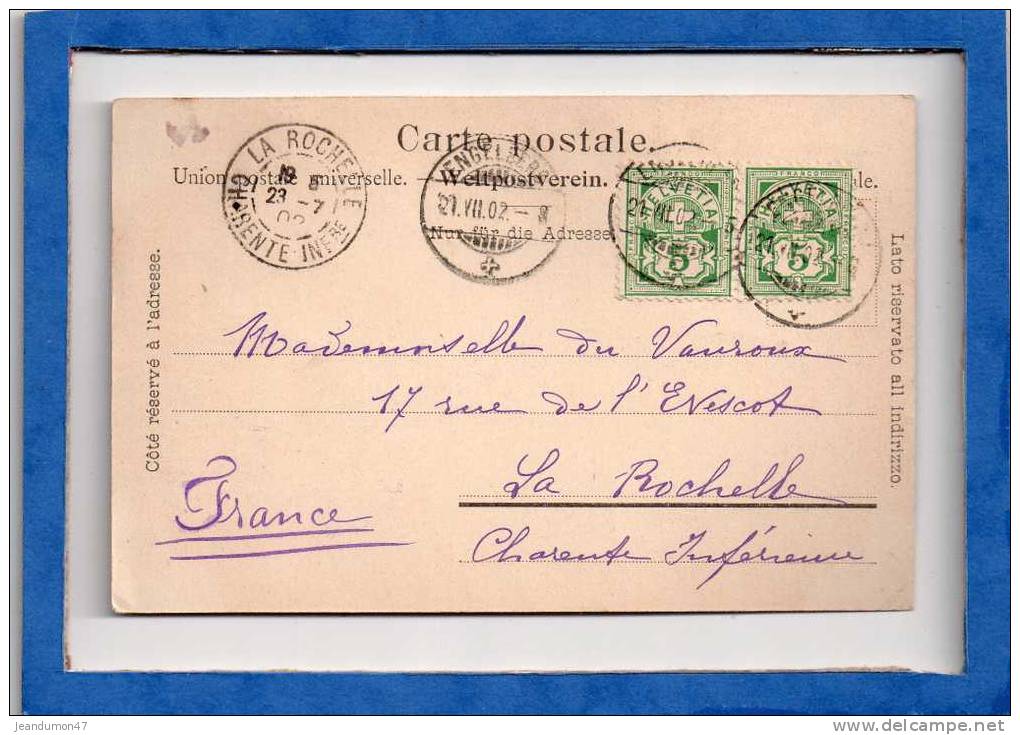 Carte postale.
Union postale universelle. — Weltpostverein.
Nur für die Adresse
LA ROCHELLE
23 - 7
02
CHARENTE INFRE
ENGELBERG
21.VII.02. - 8
21.VII.02
HELVETIA
5
FRANCO
HELVETIA
5
Côté réservé à l'adresse.
Lato riservato all indirizzo.
Mademoiselle du Vauroux
17 rue de l'Evescot
La Rochelle
Charente Inférieure
France
jeandumon47
http://www.delcampe.net